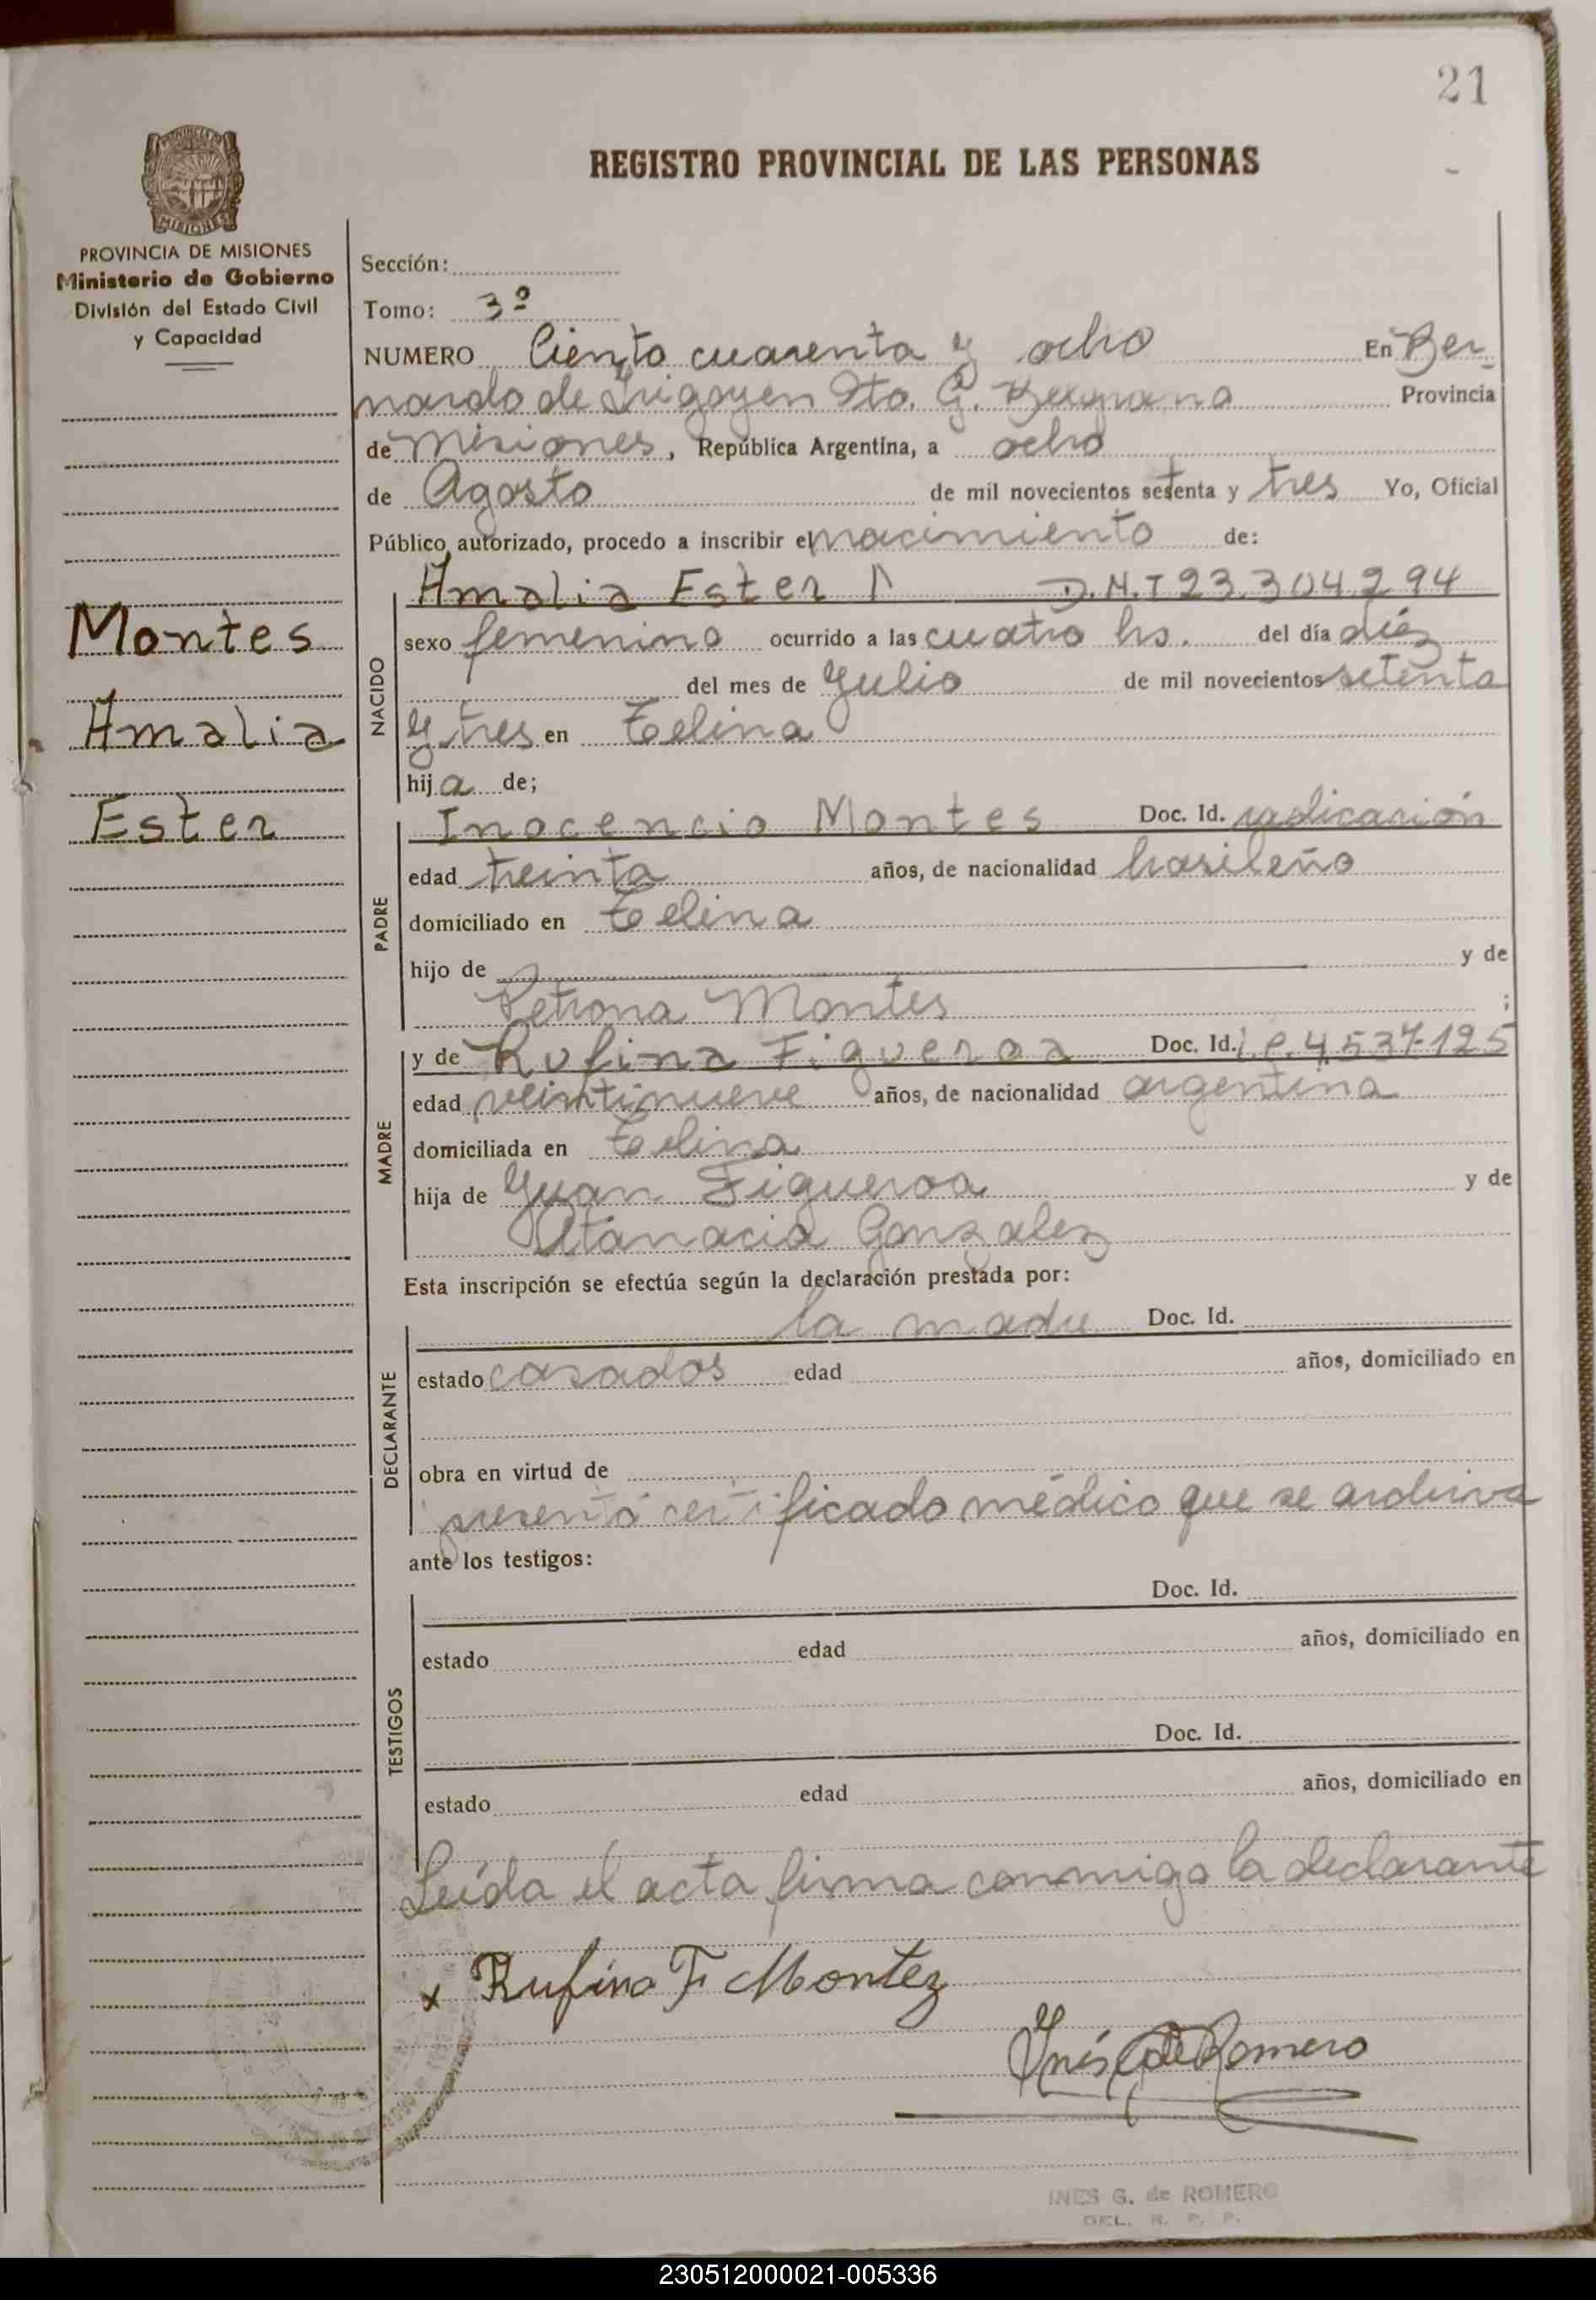 21
REGISTRO PROVINCIAL DE LAS PERSONAS
PROVINCIA DE MISIONES
Ministerio de Gobierno
División del Estado Civil
y Capacidad
Montes
Amalia
Ester
Sección:
Tomo: 3º
NUMERO Ciento cuarenta y ocho En Ber
nardo de Irigoyen Dto. G. Belgrano Provincia
de Misiones, República Argentina, a ocho
de Agosto de mil novecientos setenta y tres Yo, Oficial
Público autorizado, procedo a inscribir el nacimiento de:
NACIDO
Amalia Ester D.N.I 23.304.294
sexo femenino ocurrido a las cuatro hs. del día diéz
del mes de Julio de mil novecientos setenta
y tres en Celina
hija de;
PADRE
Inocencio Montes Doc. Id. radicación
edad treinta años, de nacionalidad brasileño
domiciliado en Celina
hijo de y de
Petrona Montes ;
MADRE
y de Rufina Figueroa Doc. Id. l.c. 4.537.125
edad veintinueve años, de nacionalidad argentina
domiciliada en Celina
hija de Juan Figueroa y de
Atanacia Gonzalez
Esta inscripción se efectúa según la declaración prestada por:
DECLARANTE
la madre Doc. Id.
estado casados edad años, domiciliado en
obra en virtud de
presentó certificado médico que se archiva
ante los testigos:
TESTIGOS
Doc. Id.
estado edad años, domiciliado en
Doc. Id.
estado edad años, domiciliado en
Leída el acta firma conmigo la declarante
x Rufina F. Montez
Inés G de Romero
INES G. de ROMERO
DEL. R. P. P.
230512000021-005336